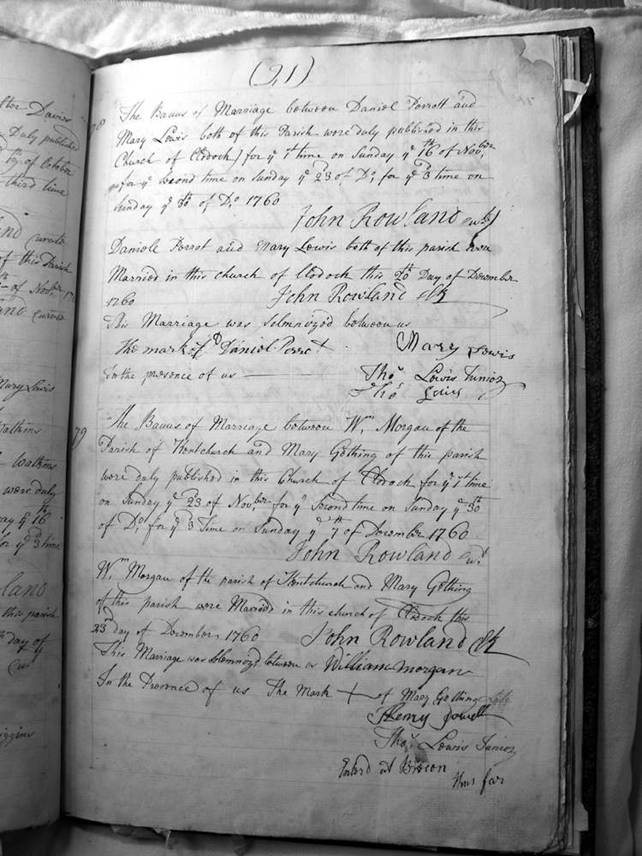 (21)
78
The Banns of Marriage between Daniel Porrott and
Mary Lewis both of this Parish were duly published in this
Church of Clodock) for ye 1st time on Sunday ye 16th of Novber
for ye Second time on Sunday ye 23 of Do, for ye 3 time on
Sunday ye 30 of Do 1760
John Rowland
Daniele Porrot and Mary Lewis both of this parish were
Married in this church of Clodock this Day of December
1760
John Rowland Clk
This Marriage was Solmnozed between us
The mark of D Daniel Perrot
Mary Lewis
In the presence of us
Thos Lewis Junior
Thos Lewis
79
The Banns of Marriage between Wm Morgan of the
Parish of Kentchurch and Mary Gothing of this parish
were duly published in this Church of Clodock for ye 1st time
on Sunday ye 23 of Novber for ye Second time on Sunday ye 30th
of Do, for ye 3 Time on Sunday ye 7th of December 1760
John Rowland
Wm Morgan of the parish of Kentchurch and Mary Gothing
of this parish were Married in this church of Clodock this
23d day of December 1760 John Rowland Clk
This Marriage was Solmnozed between us William morgan
In the Presence of us The Mark + of Mary Gothing
Henry Powell
Thos Lewis Junior
Enterd at Brecon
thus far
ltor Davies
Duly published
third time
of this Parish
of Novbr
Mary Lewis
Watkins
Watkins
were duly
3 time
this parish
day of